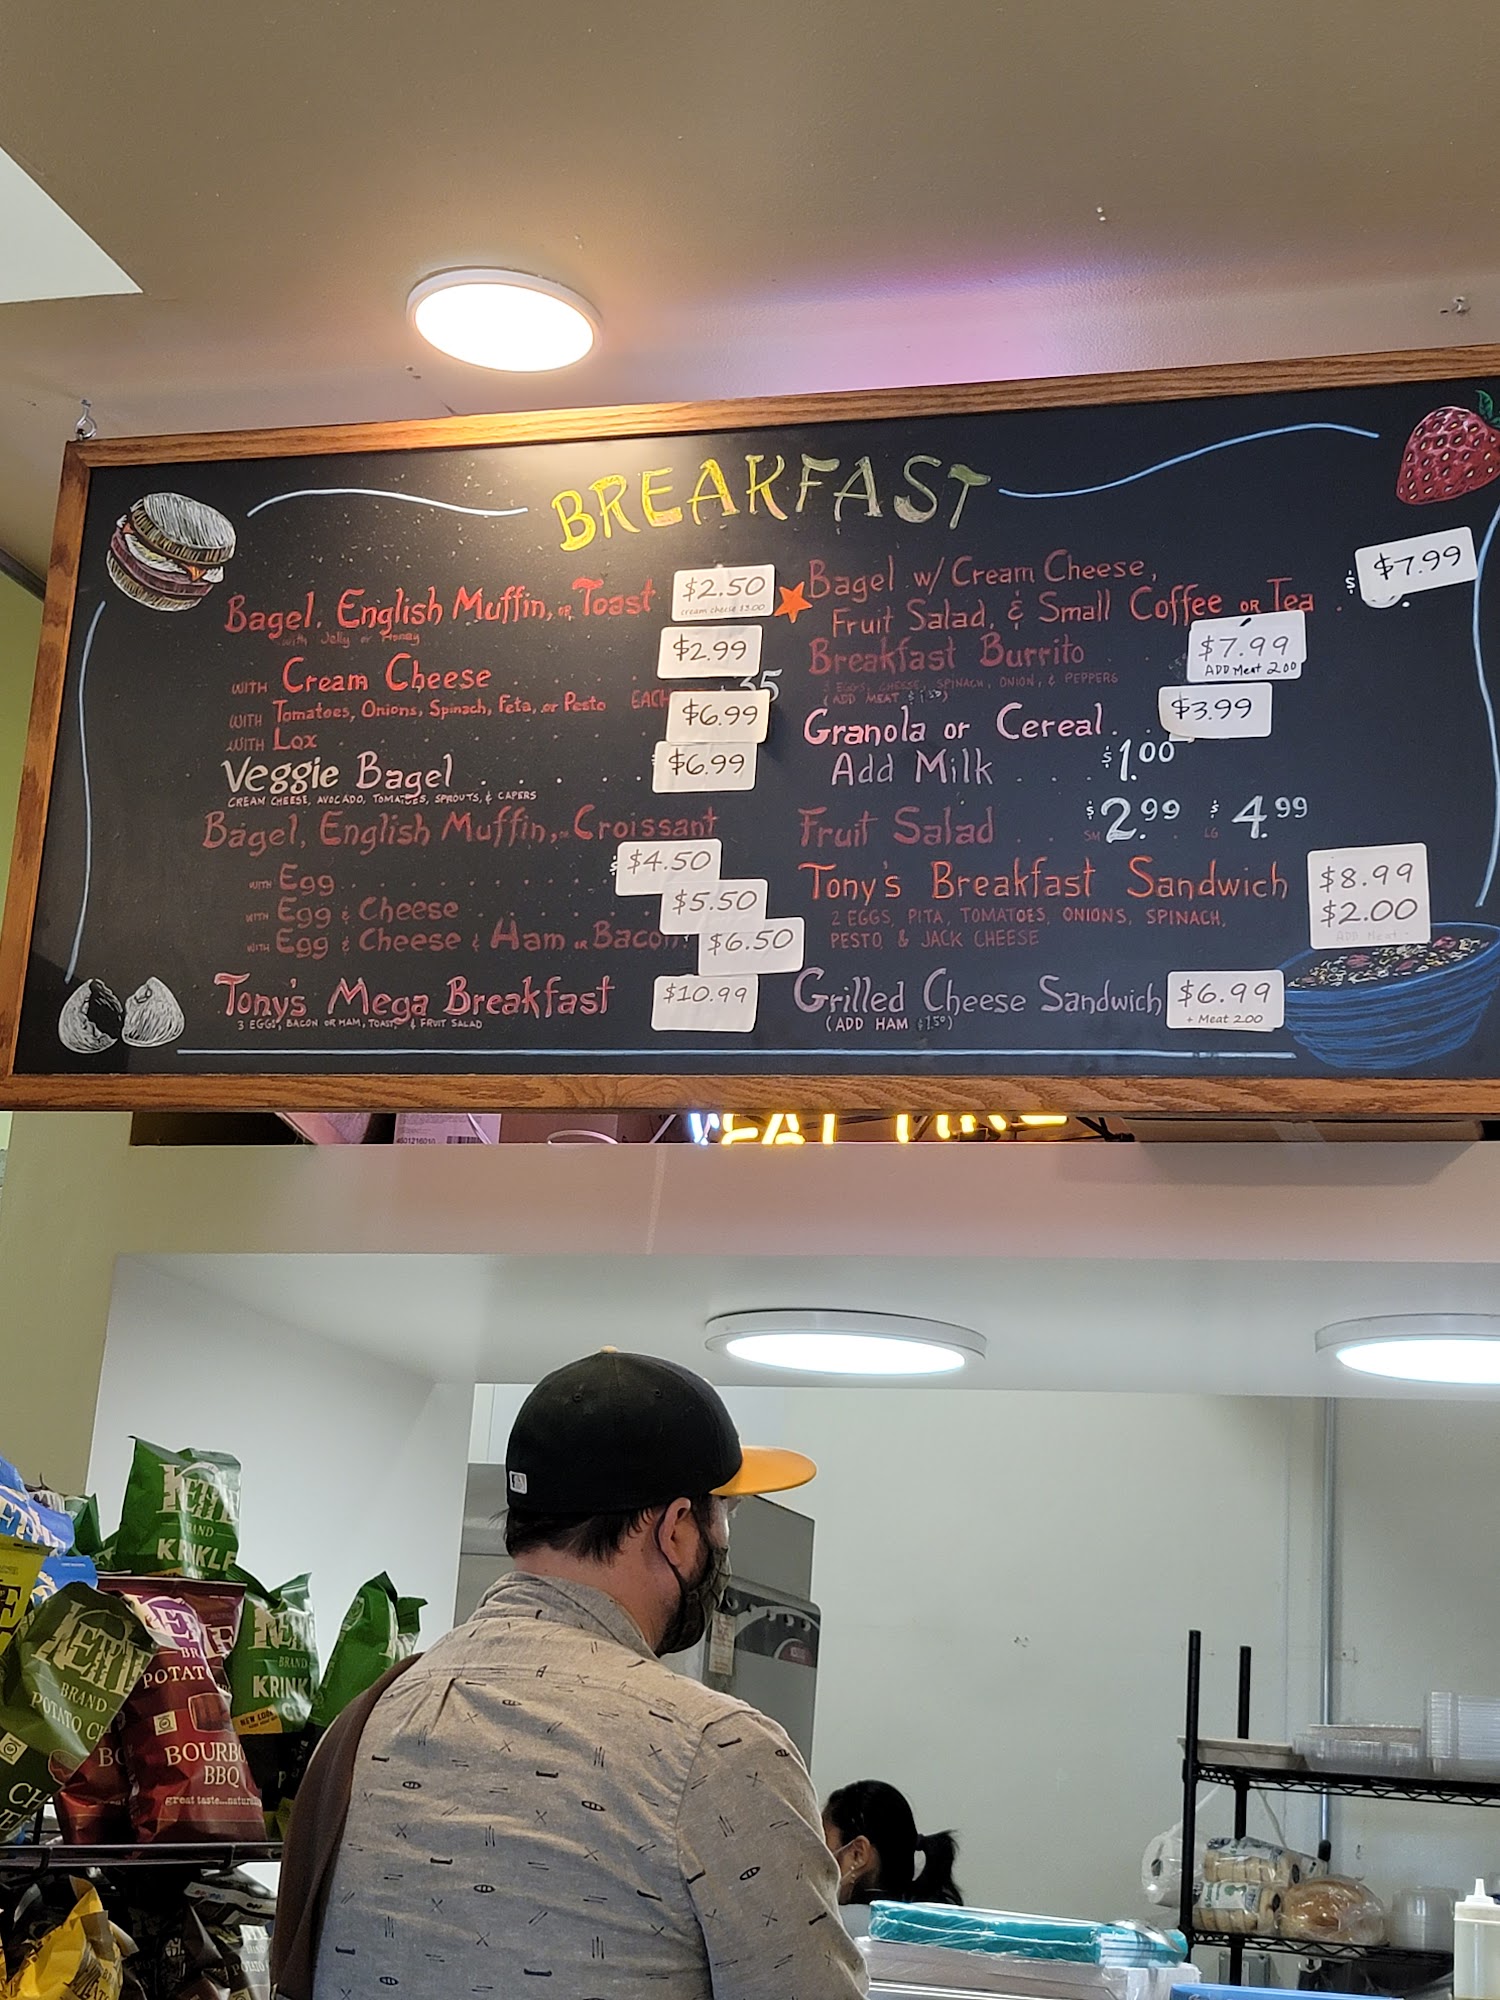 BREAKFAST
Bagel, English Muffin, OR Toast $2.50
with Jelly or Honey cream cheese $3.00
WITH Cream Cheese $2.99
WITH Tomatoes, Onions, Spinach, Feta, or Pesto EACH 35
WITH Lox $6.99
Veggie Bagel $6.99
CREAM CHEESE, AVOCADO, TOMATOES, SPROUTS, & CAPERS
Bagel, English Muffin, OR Croissant
WITH Egg $4.50
WITH Egg & Cheese $5.50
WITH Egg & Cheese & Ham OR Bacon $6.50
Tony's Mega Breakfast $10.99
3 EGGS, BACON OR HAM, TOAST, & FRUIT SALAD
Bagel w/ Cream Cheese,
Fruit Salad, & Small Coffee OR Tea $ $7.99
Breakfast Burrito $7.99
ADD Meat 2.00
3 EGGS, CHEESE, SPINACH, ONION, & PEPPERS
(ADD MEAT $1.50)
Granola or Cereal $3.99
Add Milk $1.00
Fruit Salad SM $2.99 LG $4.99
Tony's Breakfast Sandwich $8.99
2 EGGS, PITA, TOMATOES, ONIONS, SPINACH, $2.00
PESTO & JACK CHEESE ADD Meat
Grilled Cheese Sandwich $6.99
(ADD HAM $1.50) + Meat 2.00
BRAND
KRINKLE
BRAND
POTATO
BOURBO
BBQ
great taste...natural
BRAND
KRINK
NEW LOOK
BRAND
POTATO CH